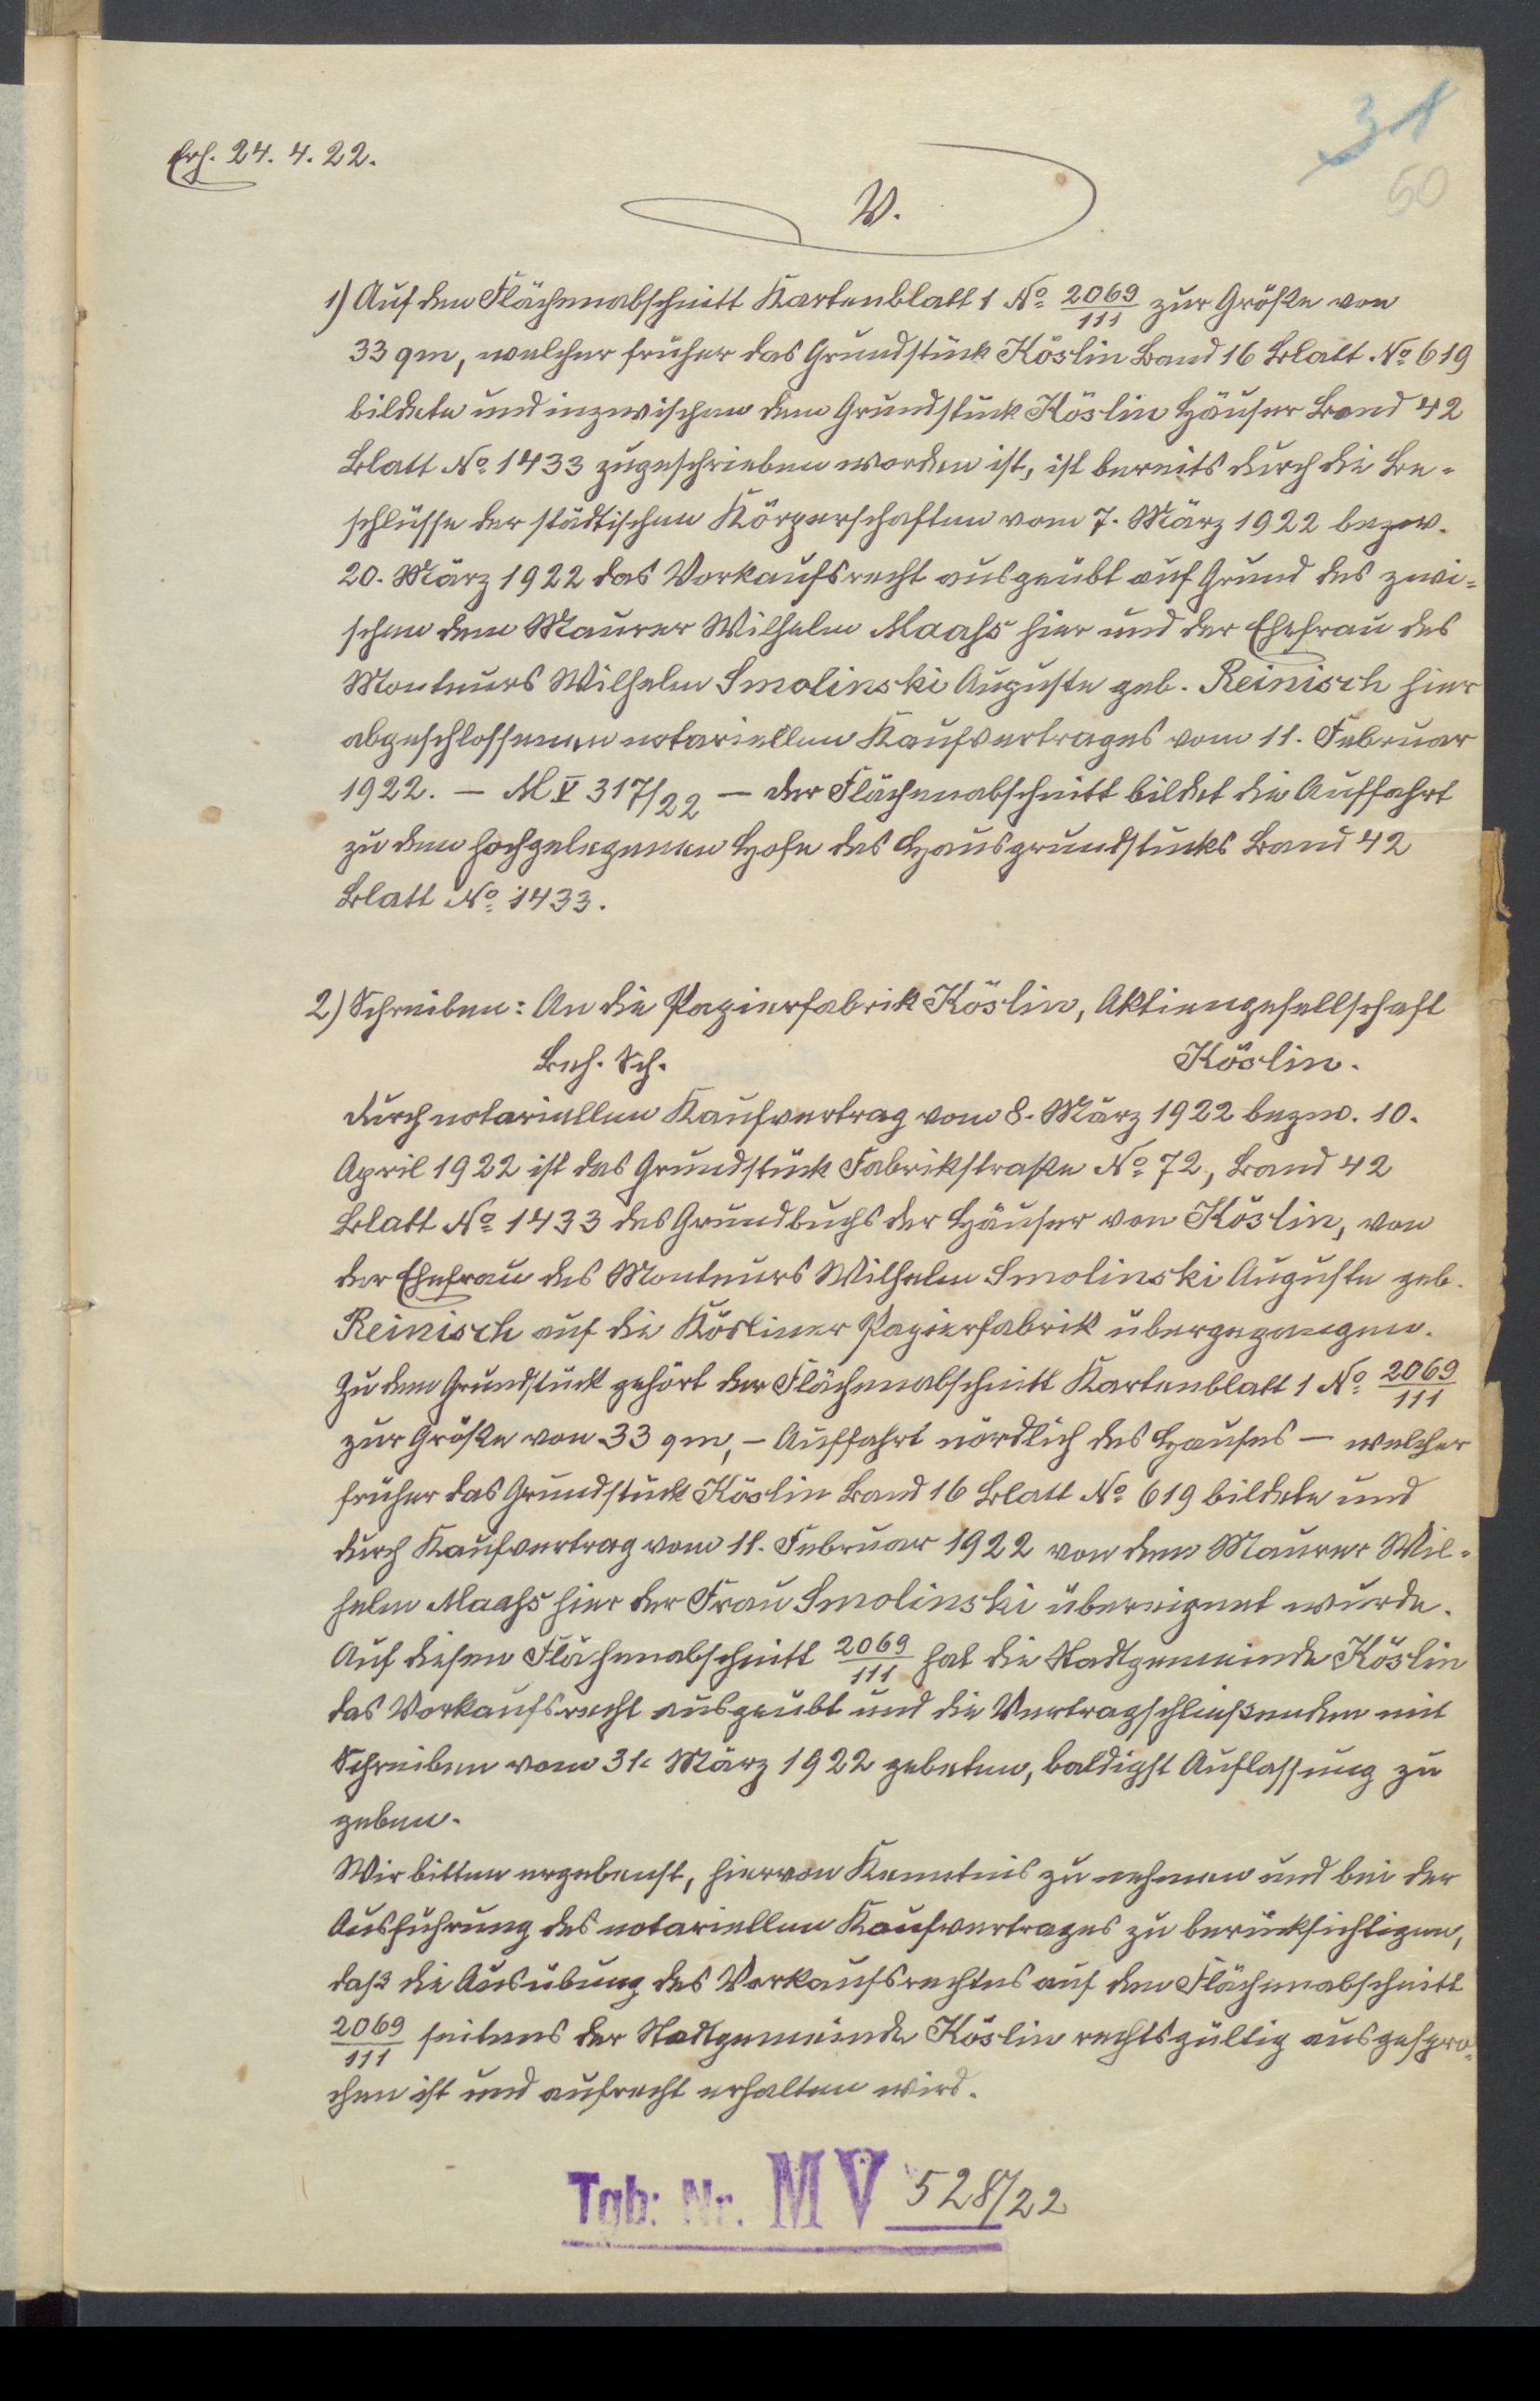 31
60
Erh. 24. 4. 22.
V.
1) Auf den Flächenabschnitt Kartenblatt 1 No 2069/111 zur Größe von
33 qm, welcher früher das Grundstück Köslin Band 16 Blatt No 619
bildete und inzwischen dem Grundstück Köslin Häuser Band 42
Blatt No 1433 zugeschrieben worden ist, ist bereits durch die Be-
schlüsse der städtischen Körperschaften vom 7. März 1922 bezw.
20. März 1922 das Vorkaufsrecht ausgeübt auf Grund des zwi-
schen dem Maurer Wilhelm Maahs hier und der Ehefrau des
Monteurs Wilhelm Smolinski Auguste geb. Reinisch hier
abgeschlossenen notariellen Kaufvertrages vom 11. Februar
1922. – M V 317/22 – der Flächenabschnitt bildet die Auffahrt
zu dem hochgelegenen Hofe des Hausgrundstücks Band 42
Blatt No 1433.
2) Schreiben: An die Papierfabrik Köslin, Aktiengesellschaft
Beh. Sch. Köslin.
Durch notariellen Kaufvertrag vom 8. März 1922 bezw. 10.
April 1922 ist das Grundstück Fabrikstraße No 72, Band 42
Blatt No 1433 des Grundbuchs der Häuser von Köslin, von
der Ehefrau des Monteurs Wilhelm Smolinski Auguste geb.
Reinisch auf die Kösliner Papierfabrik übergegangen.
Zu dem Grundstück gehört der Flächenabschnitt Kartenblatt 1 No 2069/111
zur Größe von 33 qm, – Auffahrt nördlich des Hauses – welcher
früher das Grundstück Köslin Band 16 Blatt No 619 bildete und
durch Kaufvertrag vom 11. Februar 1922 von dem Maurer Wil-
helm Maahs hier der Frau Smolinski übereignet wurde.
Auf diesen Flächenabschnitt 2069/111 hat die Stadtgemeinde Köslin
das Vorkaufsrecht ausgeübt und die Vertragschließenden mit
Schreiben vom 31. März 1922 gebeten, baldigst Auflassung zu
geben.
Wir bitten ergebenst, hiervon Kenntnis zu nehmen und bei der
Ausführung des notariellen Kaufvertrages zu berücksichtigen,
daß die Ausübung des Vorkaufsrechtes auf den Flächenabschnitt
2069/111 seitens der Stadtgemeinde Köslin rechtsgültig ausgespro-
chen ist und aufrecht erhalten wird.
Tgb: Nr. M V 528/22